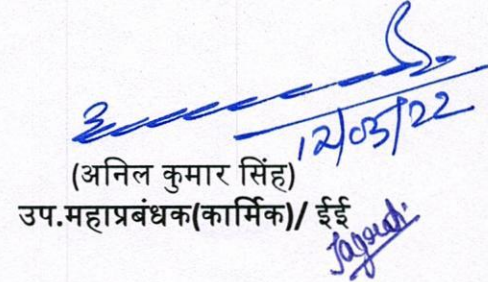 12/03/22
(अनिल कुमार सिंह)
उप.महाप्रबंधक(कार्मिक)/ ईई